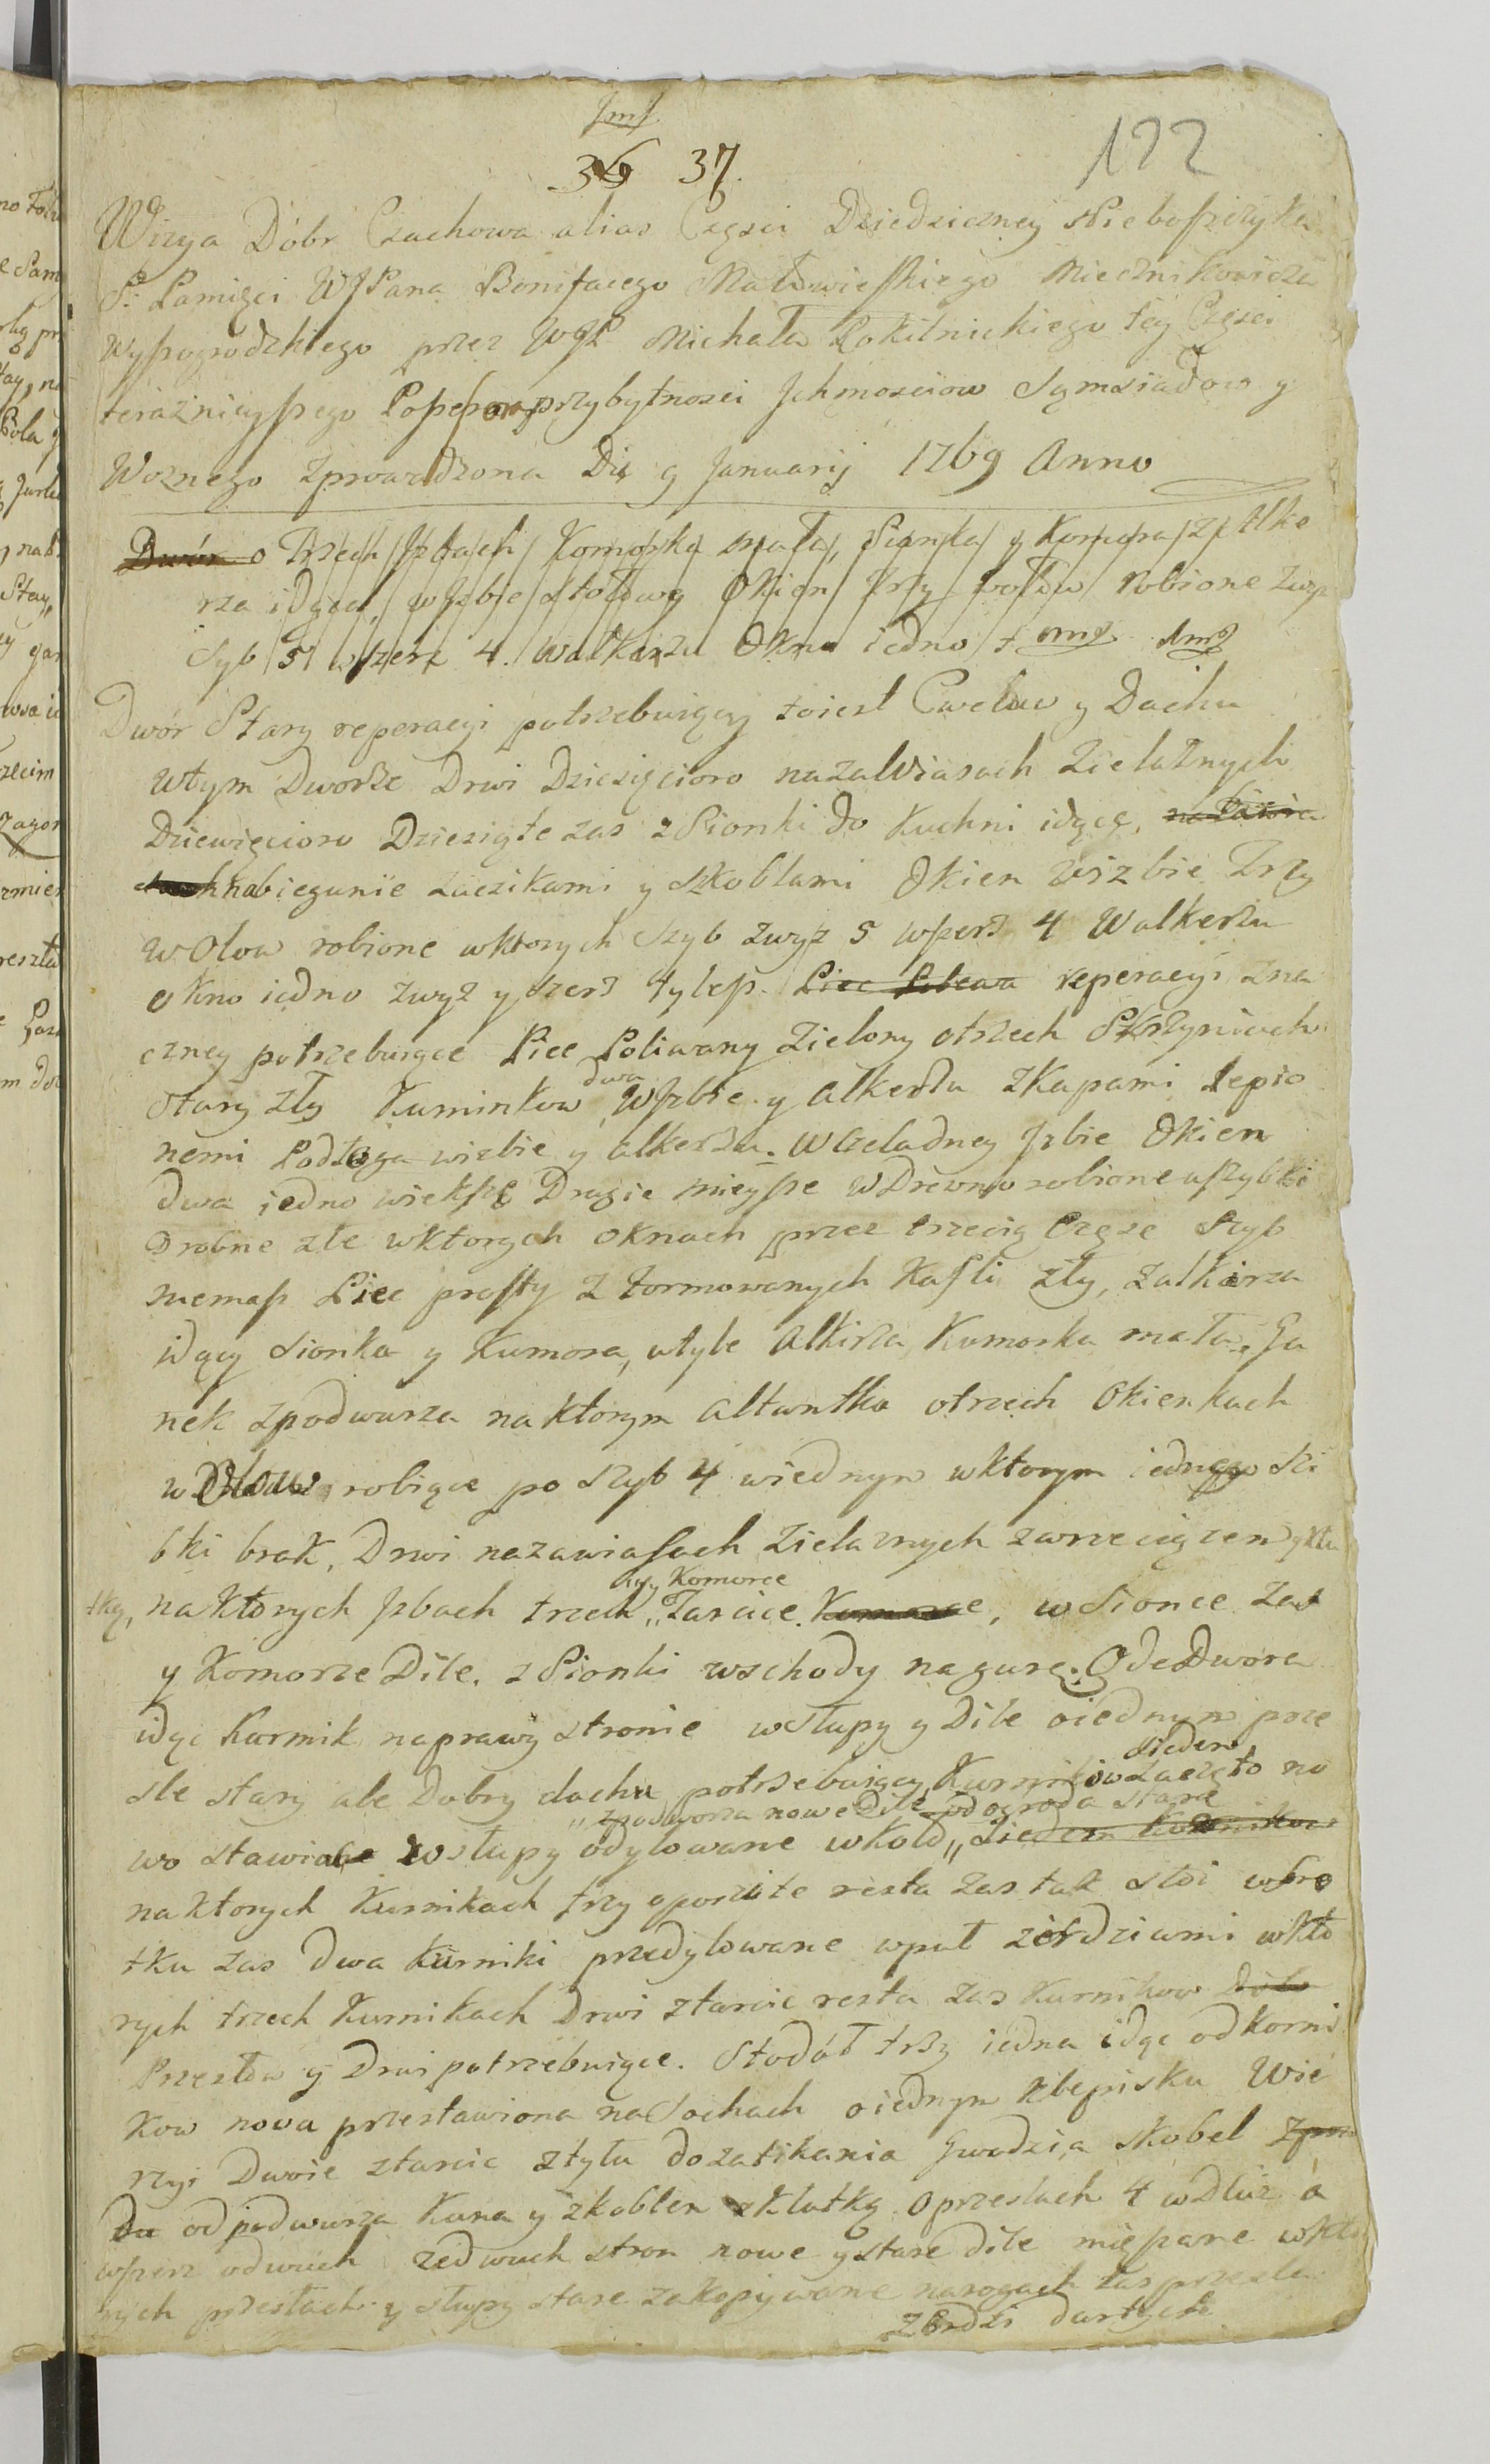 36 37.
122
Wizya Dobr Czachowa alias Częsci Dziedziczney Niebosczyka
S: Pamięci WJPana Bonifacego Małowieskiego Miecznikowicza
Wyszogrodzkiego przez WJP Michała Rokitnickiego tey Częsci
teraznieyszego przybytnosci Jchmosciow Sąmsiadow y
Woznego zprowadzona Die 9 Januarij 1769 Anno
Dwór o Trzech Jzbach Komorka mała, Sionka y Komora z Alke
rza idąca, w Jzbie stołowey Okien Trzy wołow robione zwyz
Syb 5 wszerz 4. Walkirzu Okno iedno
Dwór Stary reperacyi potrzebuiący toiest y Dachu
wtym Dworze Drwi Dziesięcioro nazawiasach Zielaznych
Dziewięcioro Dziesiąte zas z Sionki do Kuchni idące,
nabiegunie zaczikami y szkoblami Okien wizbie Trzy
w Olow robione wktorych Szyb zwyz 5 wszerz 4 Walkerzu
okno iedno zwyz y szerz tylesz. Piec reperacyi zna
czney potrzebuiące Piec Poliwany Zielony otrzech Skrzyniach
Stary zły Kuminkow dwa WJzbie y alkerzu zKapami lepio
nemi Podłoga wizbie y alkerzu. W Czeladney Jzbie Okien
dwa iedno wieksze Drugie mieysze w Drewno robione uszybki
Drobne złe wktorych oknach przez trzecią Częsc Szyb
niemasz Piec prosty z formowanych Kafli zły, zalkierza
idący Sionka y Kumora, wtyle Alkirza Kumorka mała. Ga
nek zpodwurza naktorym altantka otrzech Okienkach
w Ołow robiące po szyb 4 wiednym wktorym iedney Szi
bki brak. Drwi nazawiasach Zielaznych zwrzeciązem y kła
tką, naktorych Jzbach trzech y Komorce Tarcice Komorce, w Sionce zas
y Komorze Dile. z Sionki wschody nagurę. Ode Dwora
idąc Kurmik naprawy stronie wsłupy y Dile oiednym prze
śle stary ale Dobry dachu potrzebuiący, Kurnikow siedem zaczęto no
wo stawiac wsłupy odylowane wkoło „ zpodworza nowe Dile od ogroda stare „ Siedem Kurnikow
naktorych Kurnikach trzy resta zas tak stoi wsro
tku zas dwa kurniki przedylowane wpuł zerdziami wkto
rych trzech Kurnikach Drwi ztarcic resta zas Kurnikow
Przesłow y Drwi potrzebuiące. Stodół trzy iedna idąc odkorni
kow nowa przestawiona naSochach oiednym Klepisku Wie
rzyi Dwoie ztarcic ztyłu dozatikania Gwozdzia skobel
od podwurza Kuna y zkoblem zKlatką o przesłach 4 wDłuz a
wszerz odwuch zedwuch stron nowe y stare dile mięszane wkto
rych przesłach y słupy stare zakopywane narogach zas przesła
zerdzi dartych